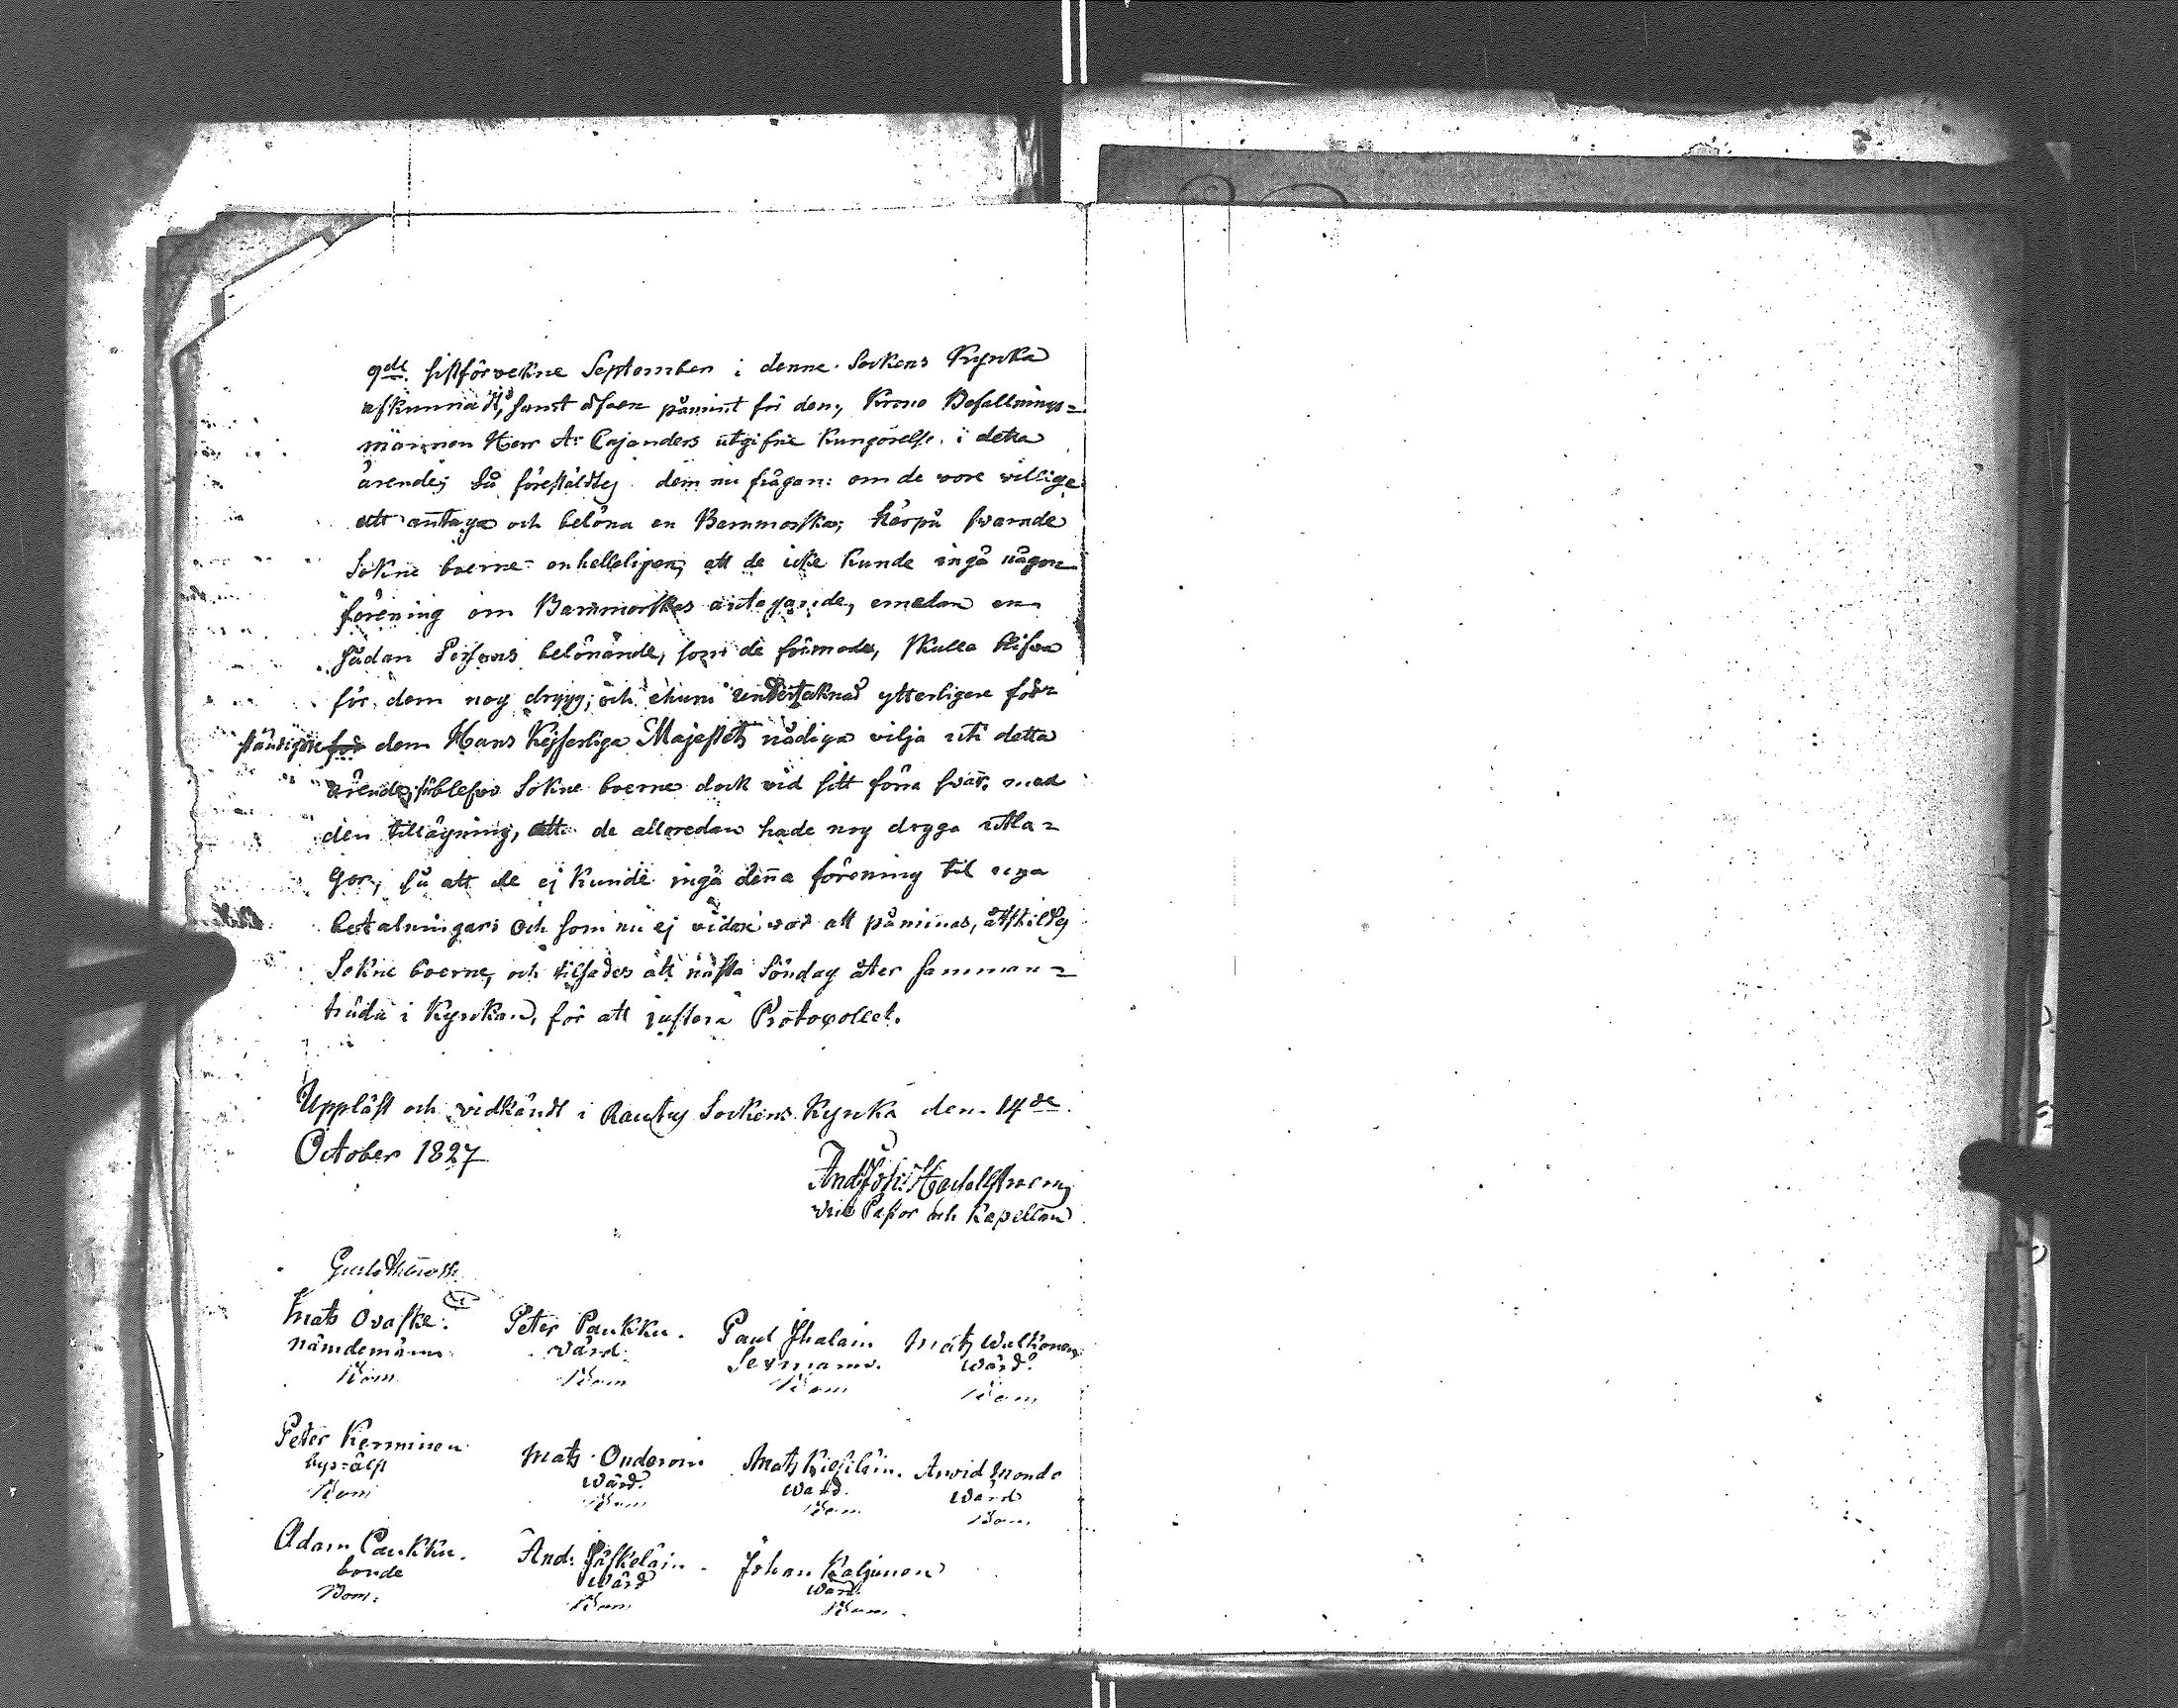 9de sistförvekne September i denne Sockens Kyrka
afkunnad, samt äfven påmint för den, Krono Befallnings=
mannen Herr A: Cajanders utgifne Kungörelse i detta
ärende; så föreställdtes dem nu frågan: om de vore villige
att antaga och belöna en Barnmorska; härpå svarade
Sokne boerne enhelleligen, att de icke kunde ingå någon
förening om Barnmorskas antagande, emedan en
sådan Persons belönande, som de förmoda, skulle blifva
för dem nog drygg; och ehuru undertecknad ytterligare före
ständigade dem Hans Kejserliga Majestets nådiga vilja uti detta
ärende, så blefvo Sokne boerne dock vid sitt förra svar, med
den tillägning, att de alleredan hade nog dryga utla=
gor, så att de ej kunde ingå denna förening til nya
betalningar; och som nu ej vidare var att påminas, åtskildes
Sokne boerne, och tilsades att nästa Söndag åter samman=
träda i Kyrkan, för att justera Protocollet.
Uppläst och vidkändt i Rautus Sockens Kyrka den 14de
October 1827
And: Joh: Hackellstroem
vice Pastor och Kapellan
Mats Ovaska
nämdeman
Peter Paukku.
värd
Paul Ihalain
Sexmann.
Mats Walkonen
Wärd
Peter Kerminen
bys=älst
Mats Onderoin
Wärd
Mats Kiesiläin.
Wärd.
Arvid Monde
Wärd
Adam Paukku.
bonde
And: Jäskeläin.
Wärd
Johan Kaljunen
Wärd